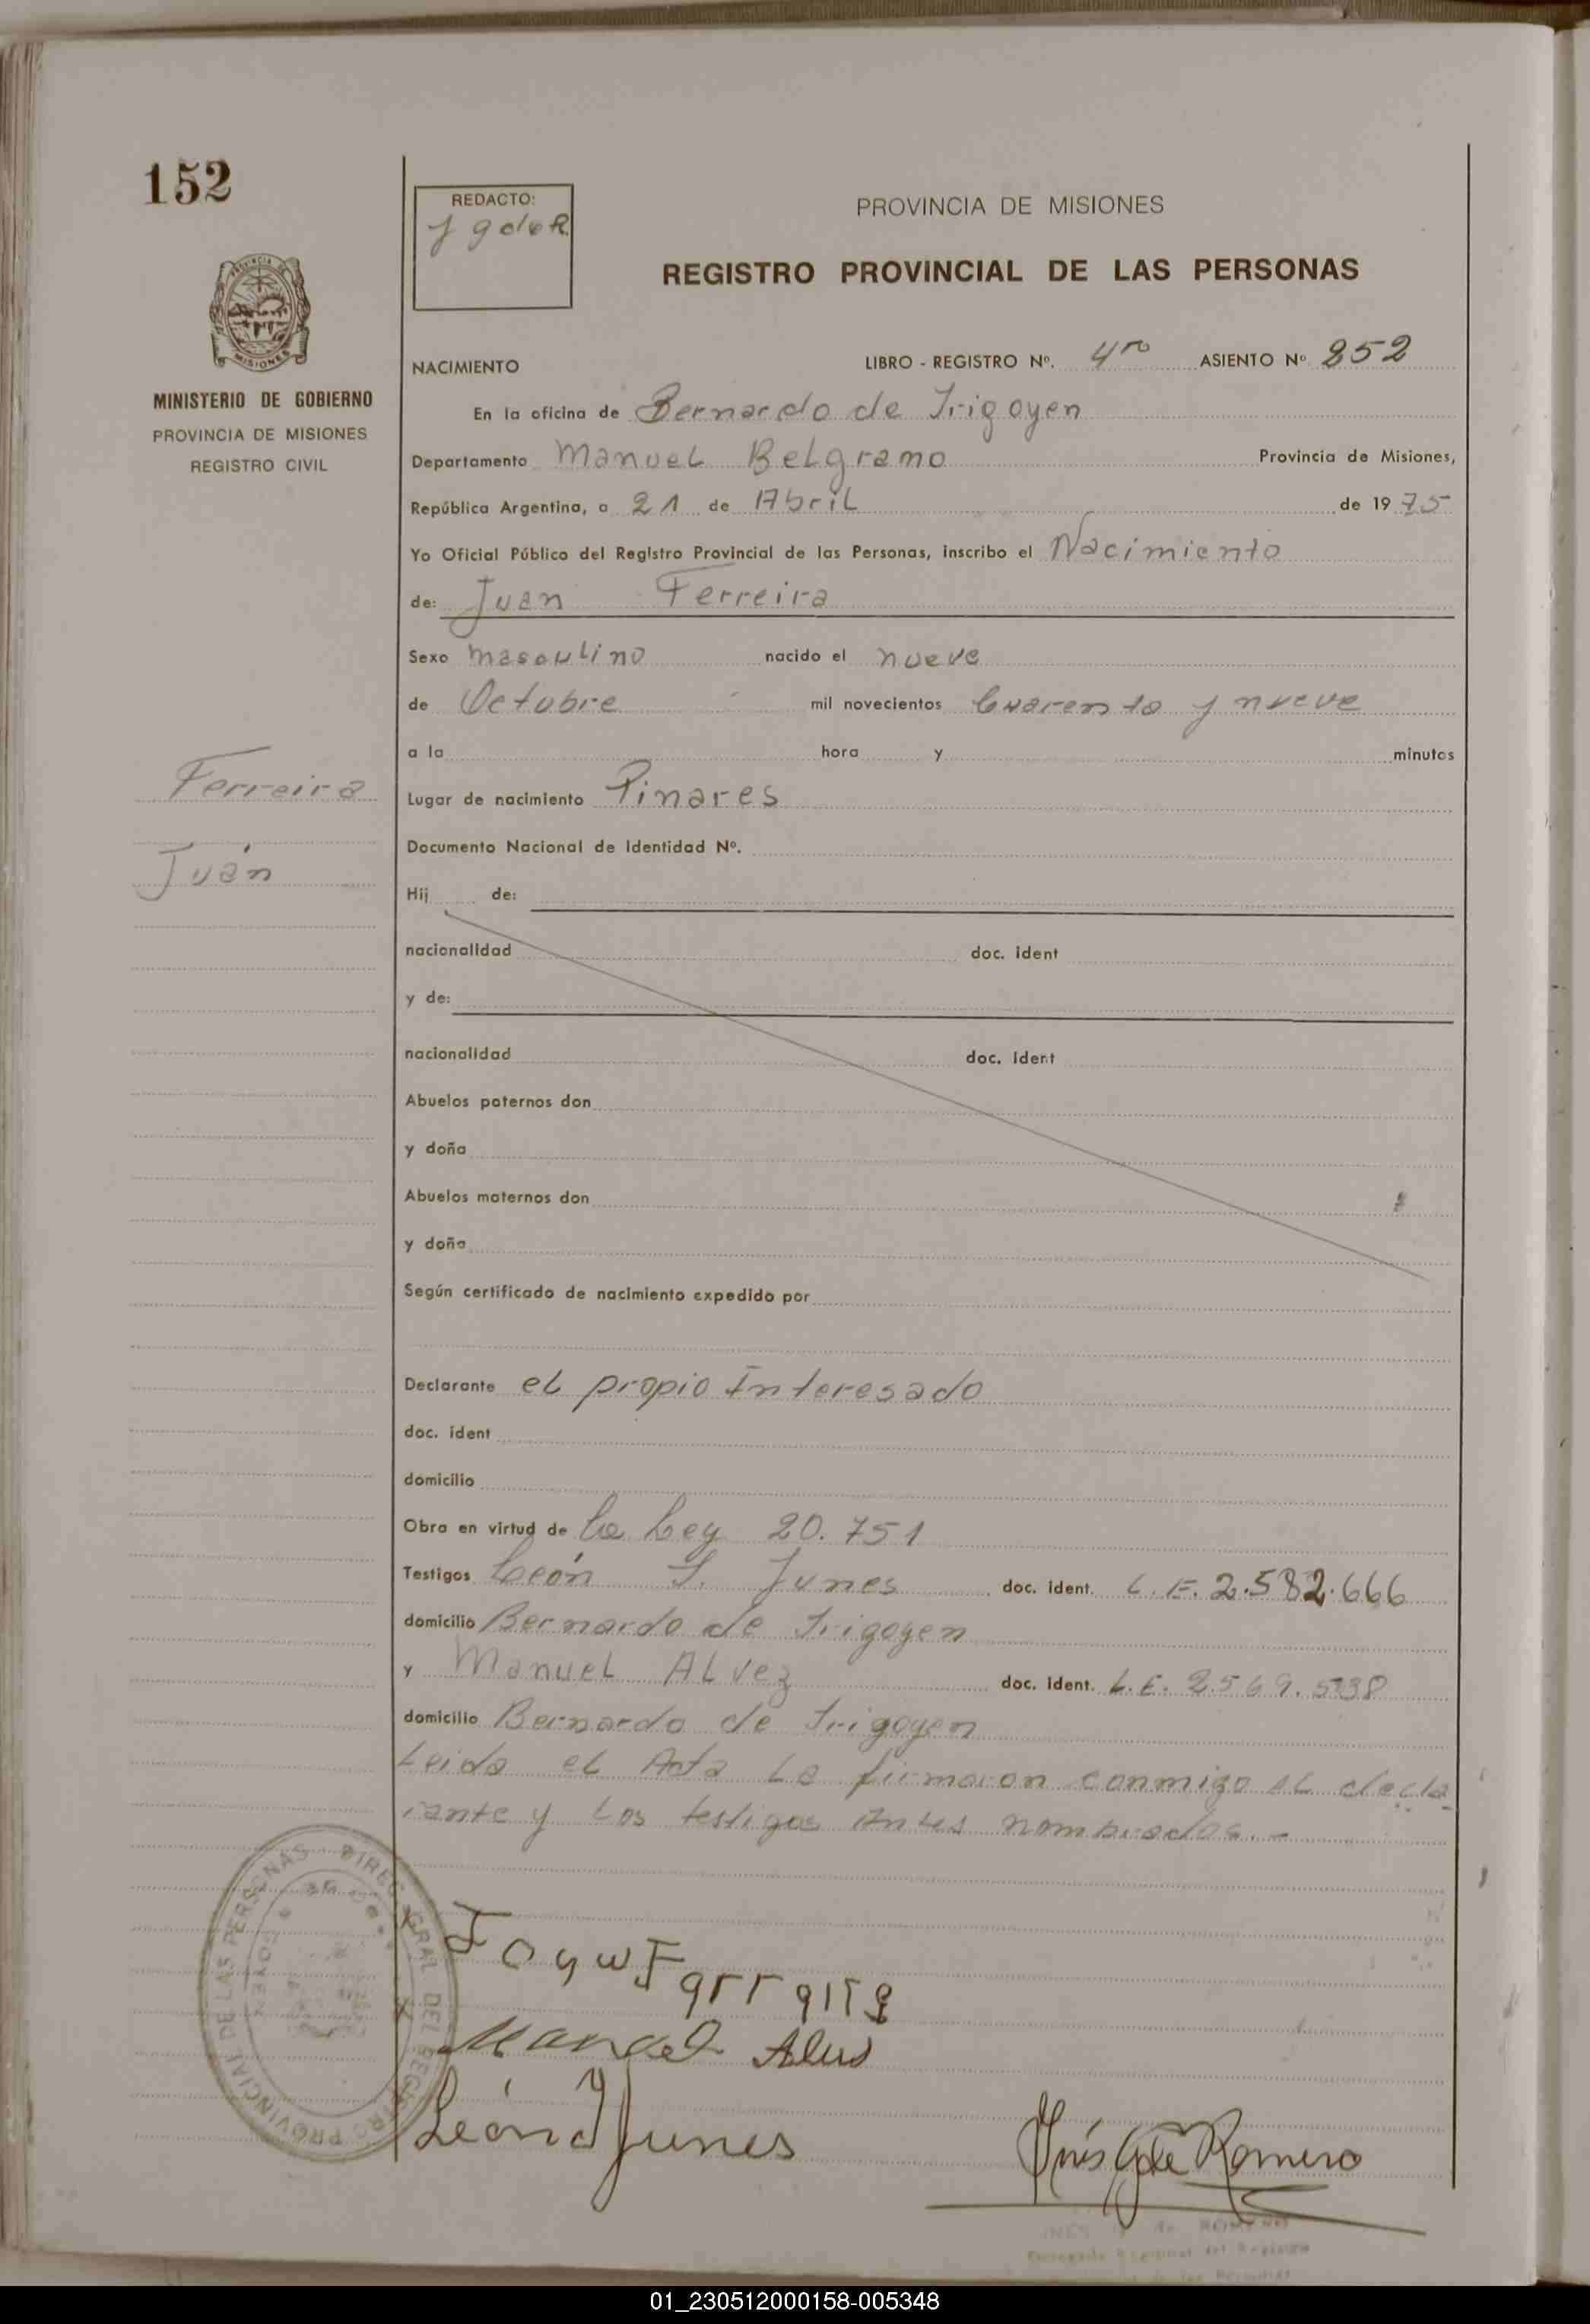 152
REDACTO:
PROVINCIA DE MISIONES
REGISTRO PROVINCIAL DE LAS PERSONAS
MISIONES
MINISTERIO DE GOBIERNO
PROVINCIA DE MISIONES
REGISTRO CIVIL
NACIMIENTO LIBRO - REGISTRO Nº. 4to ASIENTO Nº 852
En la oficina de Bernardo de Irigoyen
Departamento Manuel Belgrano Provincia de Misiones,
República Argentina, a 21 de Abril de 1975
Yo Oficial Público del Registro Provincial de las Personas, inscribo el Nacimiento
de: Juan Ferreira
Sexo masculino nacido el nueve
de Octubre mil novecientos Cuarenta y nueve
a la hora y minutos
Ferreira
Juan
Lugar de nacimiento Pinares
Documento Nacional de Identidad Nº.
Hij de:
nacionalidad doc. ident
y de:
nacionalidad doc. ident
Abuelos paternos don
y doña
Abuelos maternos don
y doña
Según certificado de nacimiento expedido por
Declarante el propio Interesado
doc. ident
domicilio
Obra en virtud de la Ley 20.751
Testigos León J. Junes doc. ident. L.E. 2.582.666
domicilio Bernardo de Irigoyen
y Manuel Alvez doc. ident. L.E. 2.569.538
domicilio Bernardo de Irigoyen
Leida el Acta la firmaron conmigo el decla
rante y los testigos antes nombrados.-
DIREC. GRAL. DEL REGISTRO PROVINCIAL DE LAS PERSONAS
Manuel Alves
León J Junes
Inés G de Romero
INES G. de ROMERO
01_230512000158-005348